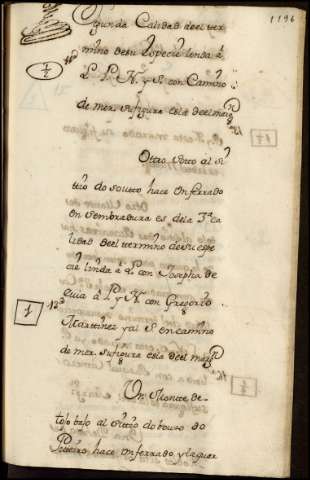 1196
Segunda Calidad de el ter
mino de su Especie linda à
L. P. N. y S. con Camino
de mez. su figura es la de el marg.n
Ottro Soto al Si
ttio do soutto hace Un ferrado
en Sembradura es de la 3.ra ca
lidad de el termino de su espe
cie linda à L con Josepha de
à P. y N. con Gregorio
Martinez y al S en camino
de mez. su figura es la de el marg.n
1
Un Monte de
tojo bajo al sittio do bouzo do
hace Un ferrado y la quar